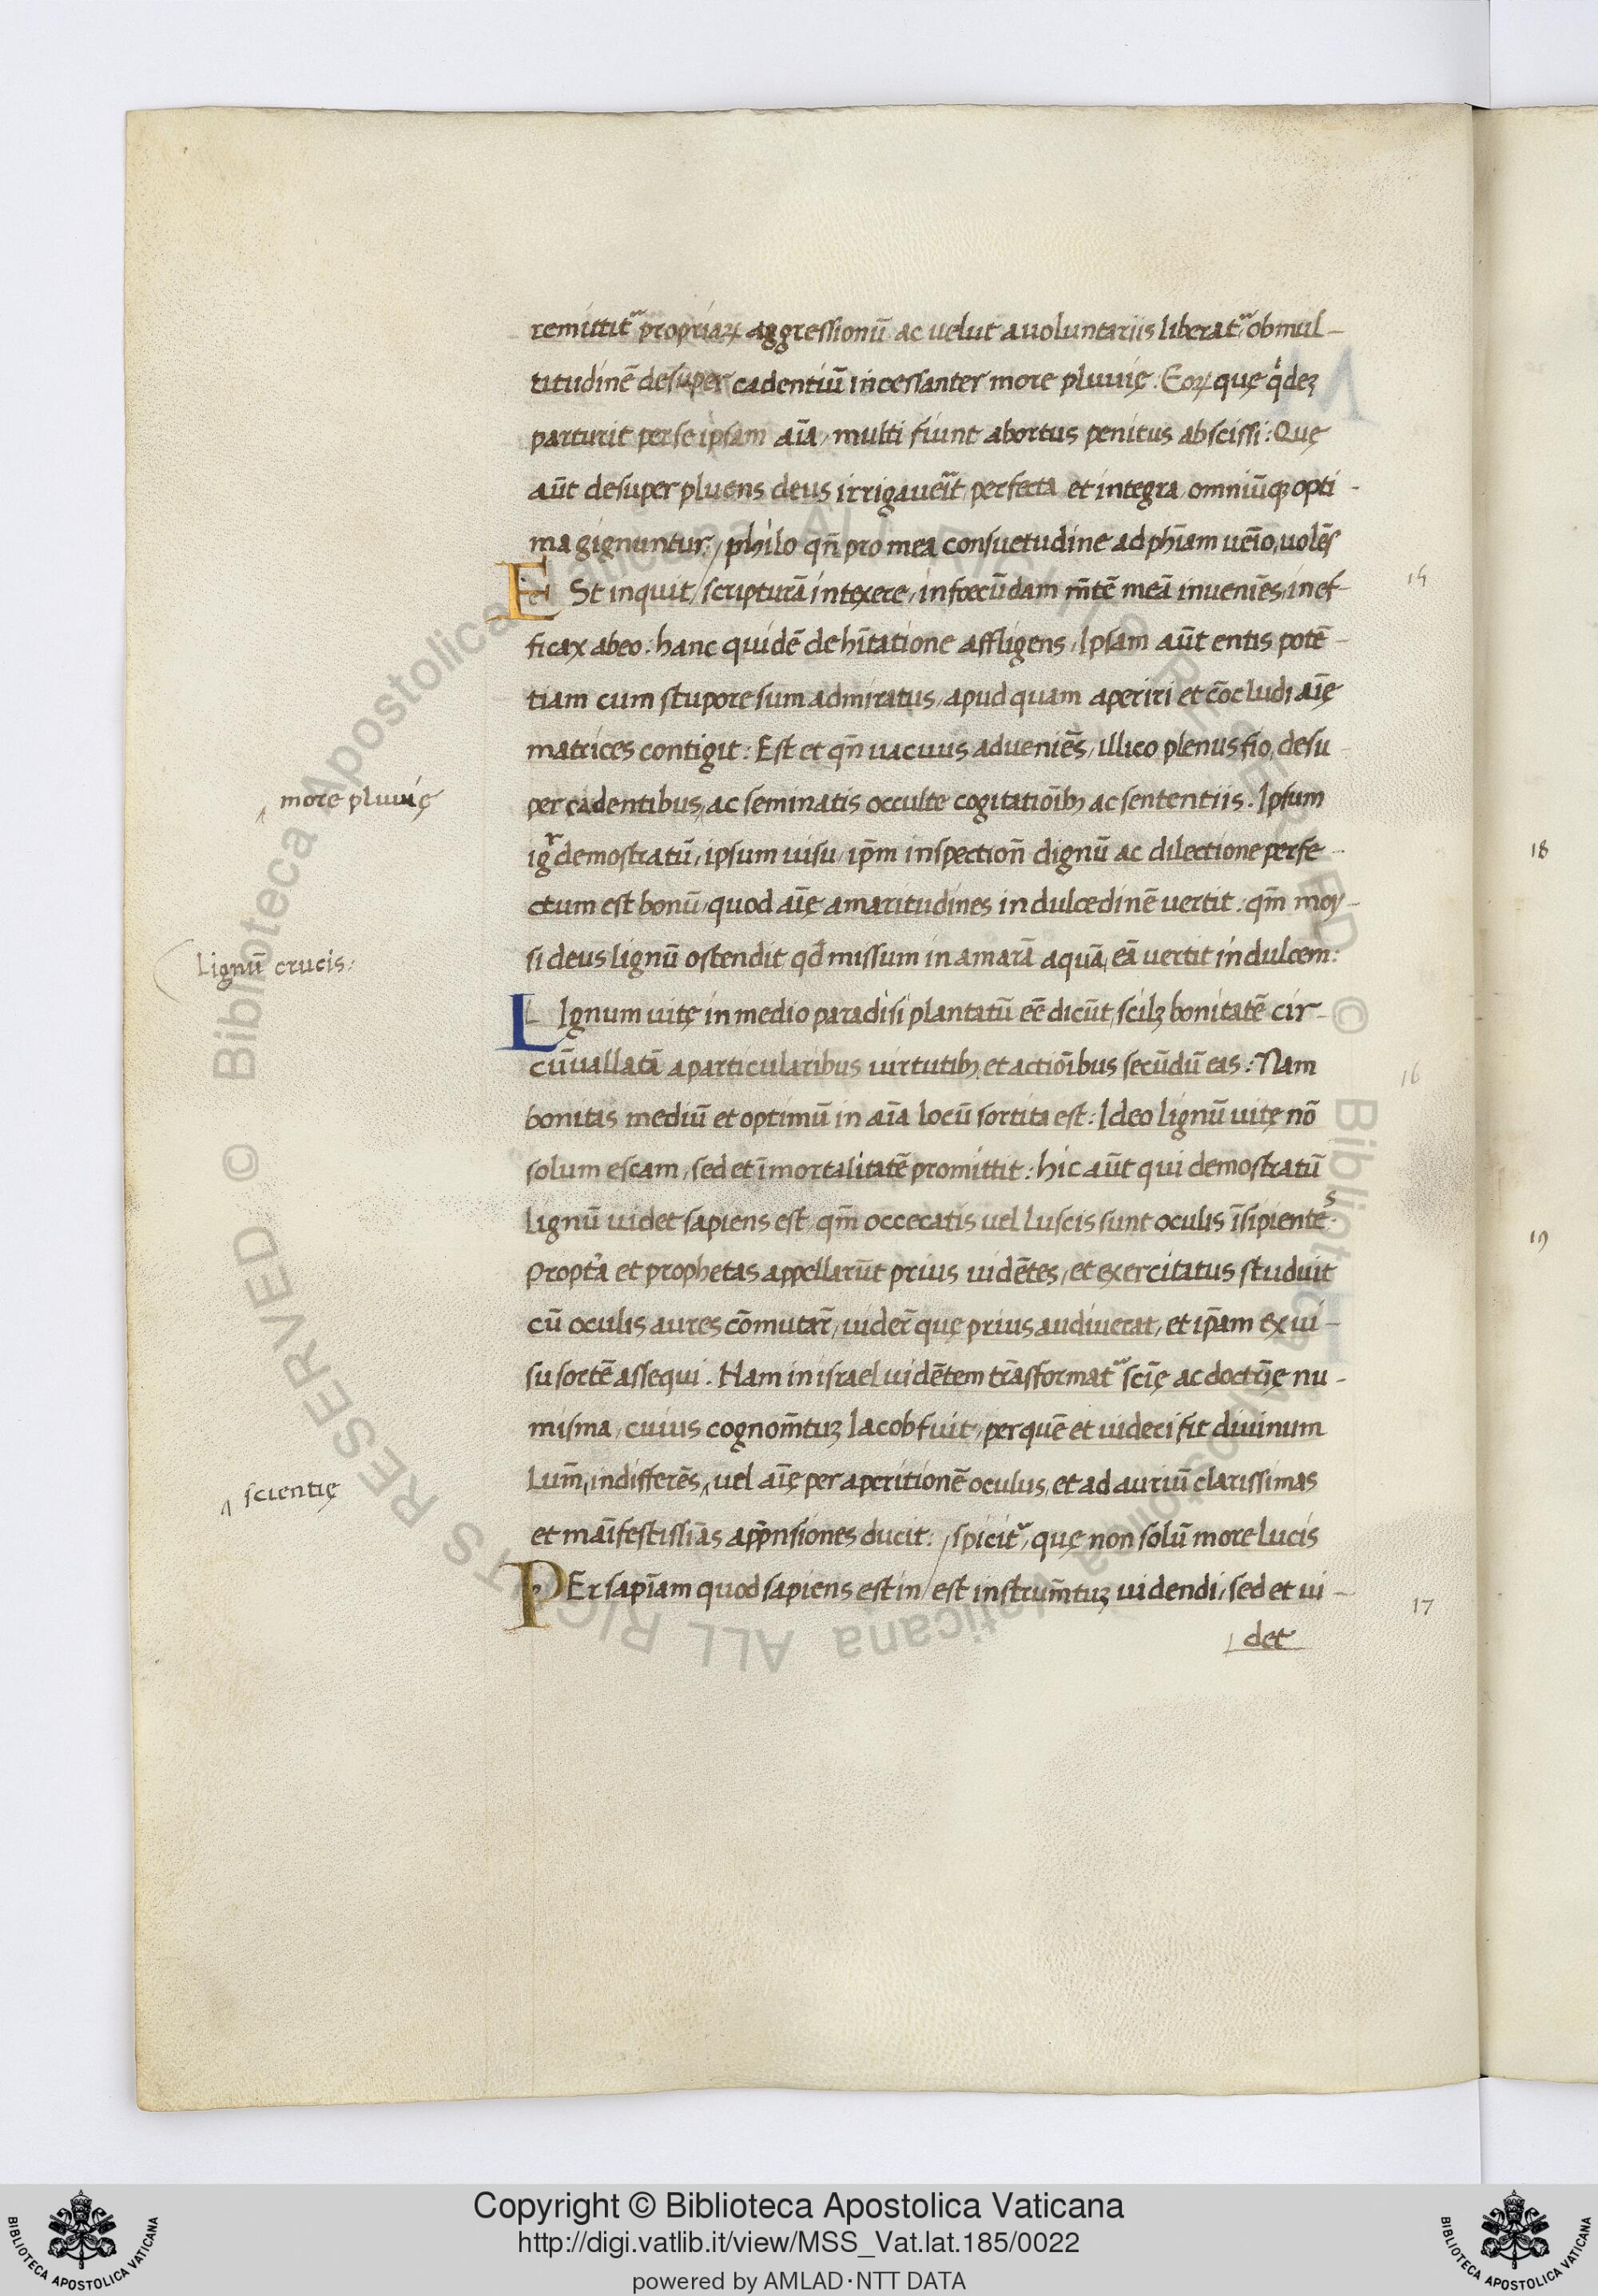 remittit᷑ propriaꝝ aggressionū ac velut a voluntariis liberat᷑, ob mul-
titudinē desuper cadentiū incessanter more pluvię: Eoꝝ quę qͥdeꝫ
parturit per se ipsam aīa, multi fiunt abortus penitus abscissi: Quę
aūt desuper pluens deus irrigaverīt, perfecta et integra omniūqꝫ opti-
ma gignuntur: / philo qn̄ pro mea consuetudine ad phīam venio, volēs
ESt inquit / scripturā intexere, infoecūdam m̄tē meā inveniēs, inef-
ficax abeo: hanc quidē de hītatione affligens, Ipsam aūt entis potē-
tiam cum stupore sum admiratus, apud quam aperiri et cōcludi aīę
matrices contigit: Est et qn̄ vacuus adveniēs, illico plenus fio, desu-
per cadentibus, ac seminatis occulte cogitatiōibꝫ ac sententiis. Ipsum
more pluvię
igͬ demostratū, ipsum visu, ip̄m inspection̄ dignū ac dilectione perfe-
ctum est bonū, quod aīę amaritudines in dulcedinē vertit. qm̄ moy-
si deus lignū ostendit qd̄ missum in amarā aquā, eā vertit in dulcem:
Lignū crucis:
LIgnum vitę in medio paradisi plantatū eē dicūt, scilꝫ bonitatē cir-
cūvallatā a particularibus virtutibꝫ et actiōibus secūdū eas: Nam
bonitas mediū et optimū in aīa locū sortita est: Ideo lignū vitę nō
solum escam, sed et īmortalitatē promittit: hic aūt qui demostratū
lignū videt sapiens est, qm̄ occecatis vel luscis sunt oculis īsipientes.
Proptᷓa et prophetas appellarūt prius vidētes, et exercitatus studuit
cū oculis aures cōmutar̄, vider̄ quę prius audiverat, et ip̄am ex vi-
su sortē assequi. Nam in israel vidētem trāsformat᷑ scīę ac doctrīę nu-
misma, cuius cognom̄tuꝫ Iacob fuit, per quē et videri fit divinum
Lum̄, indifferēs, vel aīę per aperitionē oculus, et ad auriū clarissimas
scientię
et maīfestissīas app̄nsiones ducit: / spicit᷑, quę non solū more lucis
PEr sapīam quod sapiens est in / est instrum̄tuꝫ videndi, sed et vi-
det
15
16
17
18
19
Copyright © Biblioteca Apostolica Vaticana
http://digi.vatlib.it/view/MSS_Vat.lat.185/0022
powered by AMLAD·NTT DATA
BIBLIOTECA APOSTOLICA VATICANA
BIBLIOTECA APOSTOLICA VATICANA
© Biblioteca Apostolica Vaticana ALL RIGHTS RESERVED
© Biblioteca Apostolica Vaticana ALL RIGHTS RESERVED